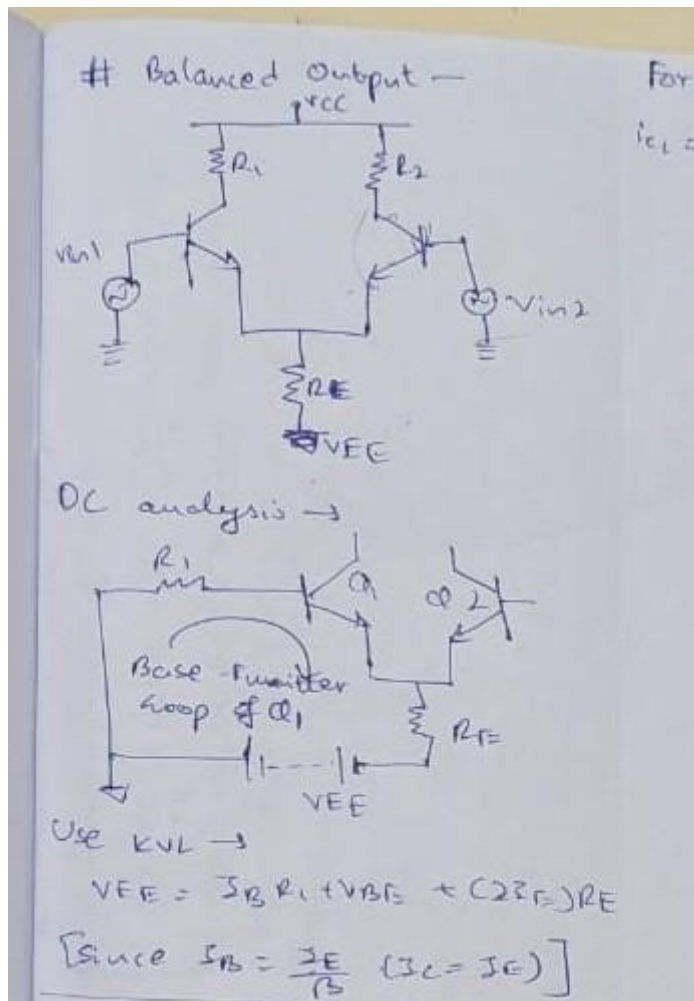 # Balanced Output —
For
VCC
ic1 =
R1
R2
Vin1
Vin2
RE
VEE
DC analysis →
R1
Q1
Q2
Base-Emitter
Loop of Q1
RE
VEE
Use KVL →
VEE = IB R1 + VBE + (2IE)RE
[since IB = IE/β (IC = IE)]